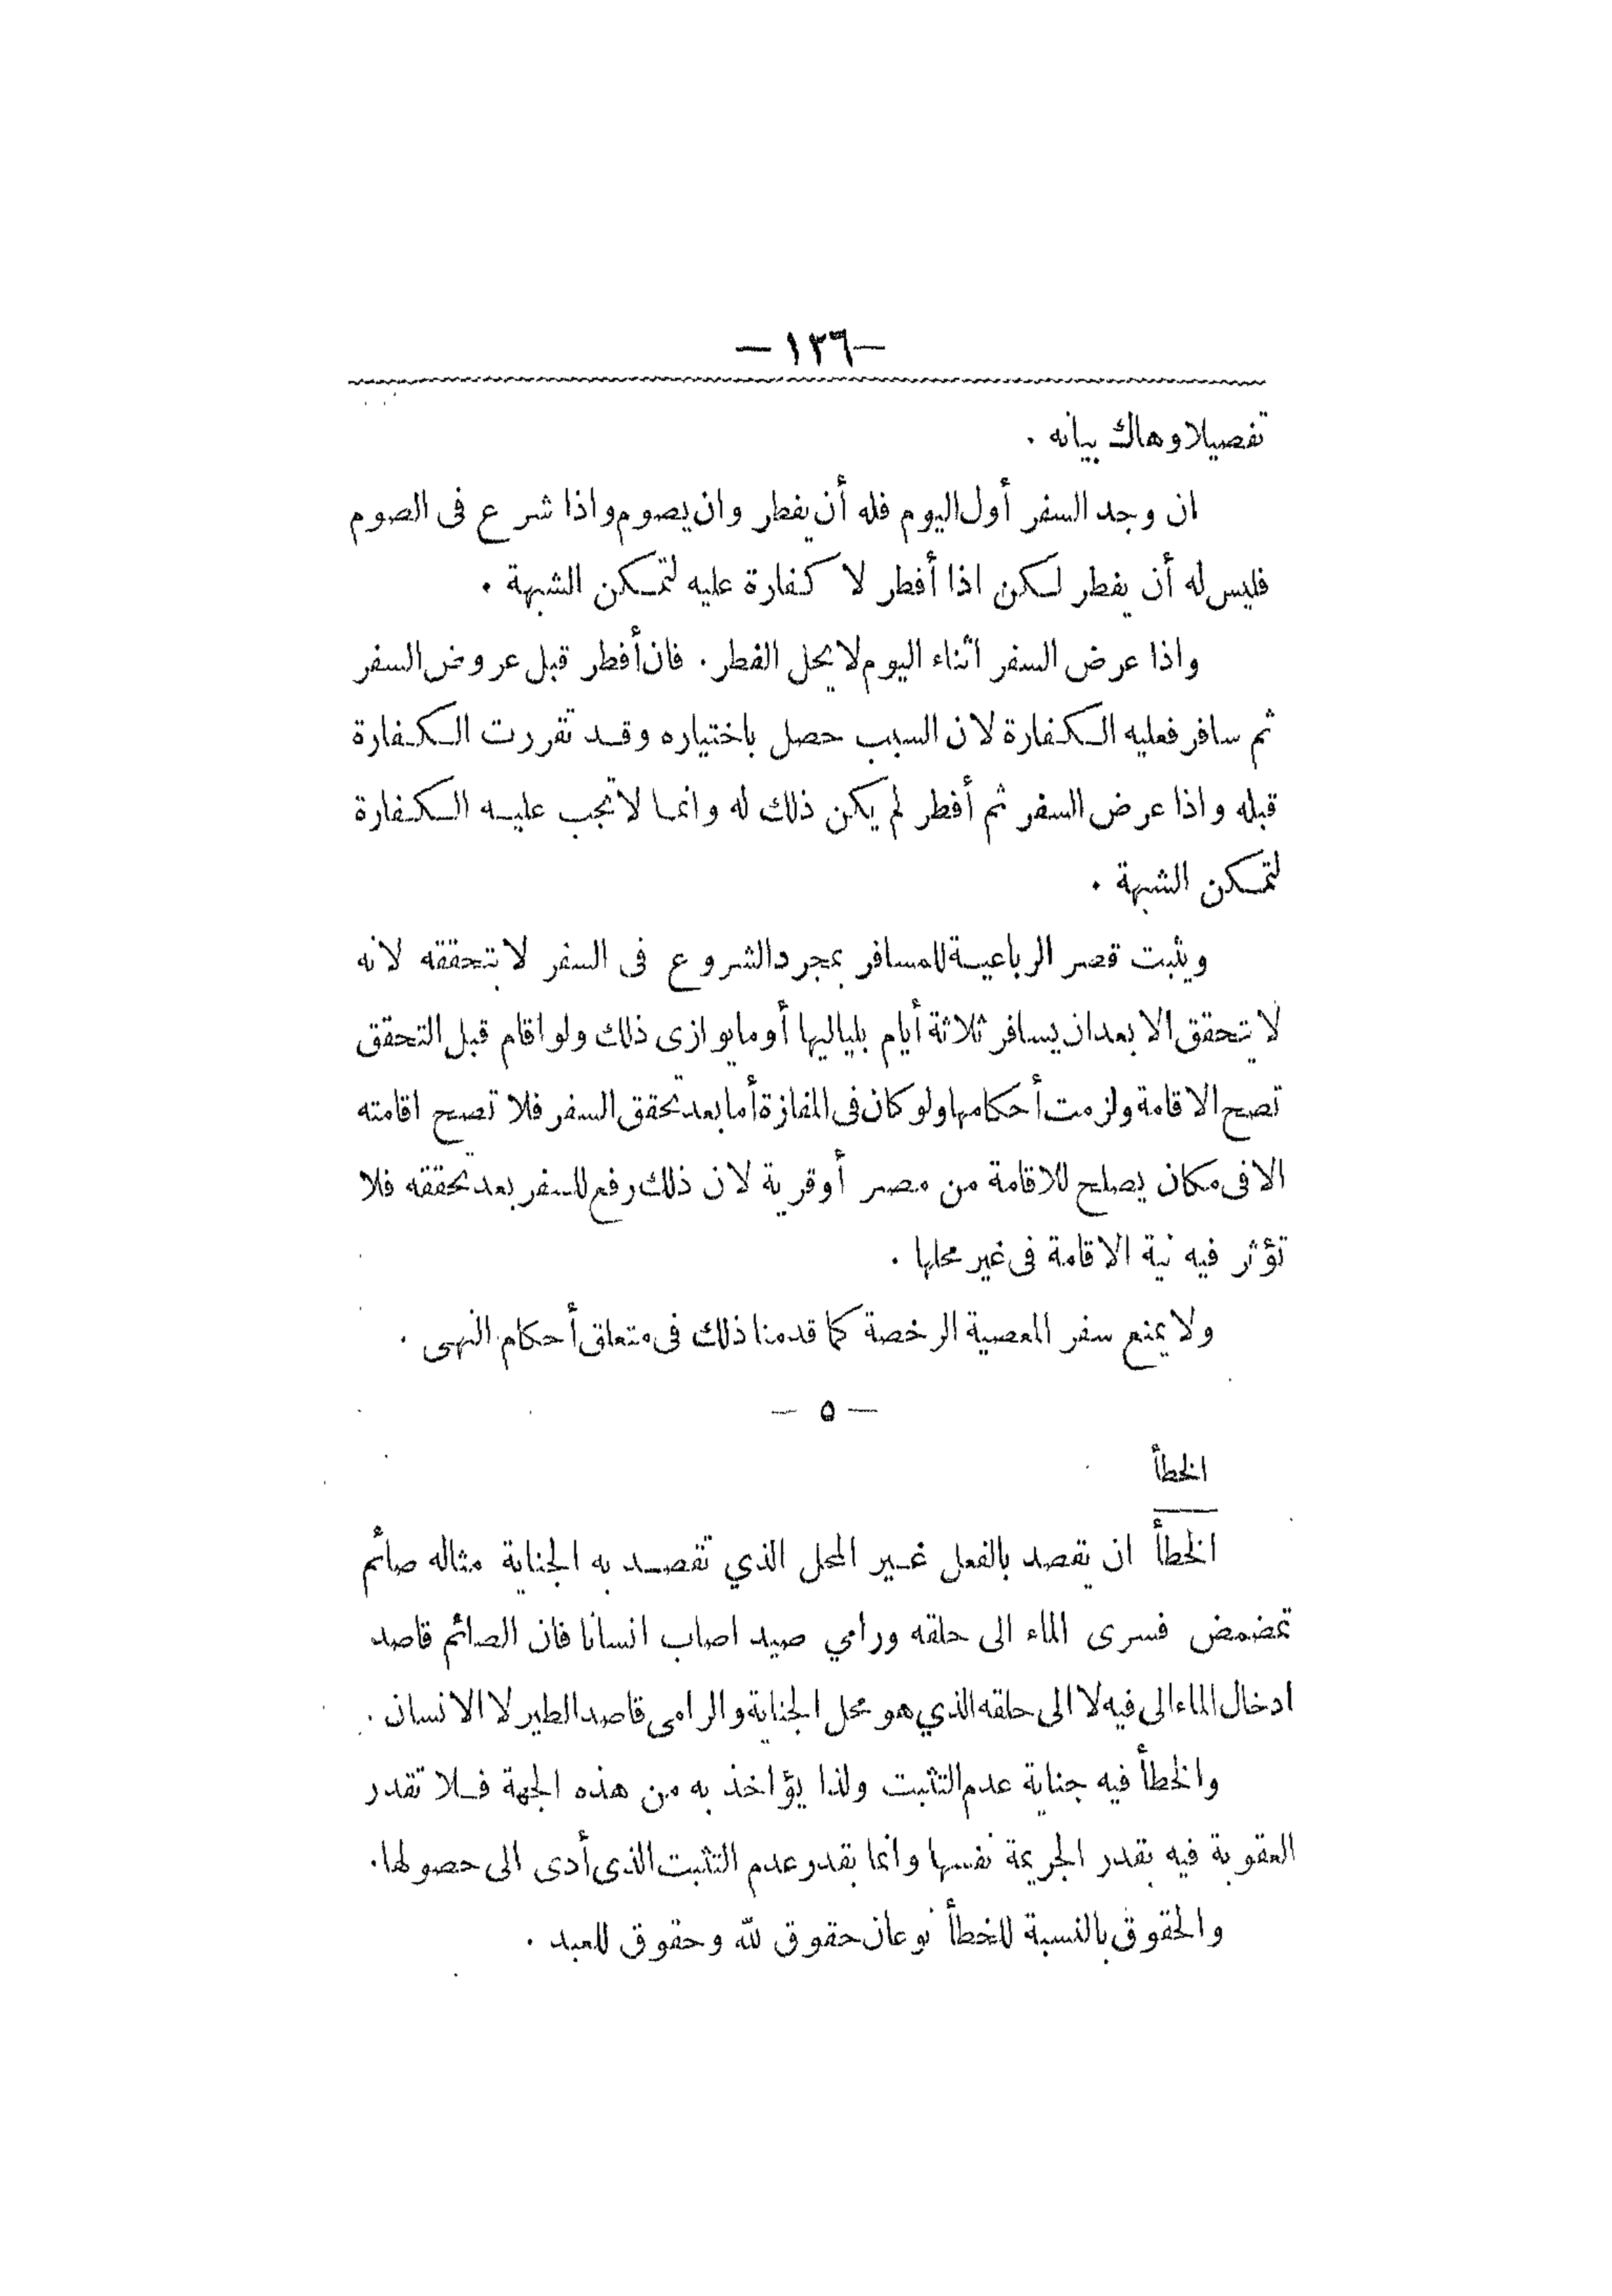 — ١٣٦ —
تفصيلا وهاك بيانه .
ان وجد السفر أول اليوم فله أن يفطر وان يصوم واذا شرع فى الصوم
فليس له أن يفطر لكن اذا أفطر لا كفارة عليه لتمكن الشبهة .
واذا عرض السفر اثناء اليوم لا يحل الفطر . فان أفطر قبل عروض السفر
ثم سافر فعليه الكفارة لان السبب حصل باختياره وقد تقررت الكفارة
قبله واذا عرض السفر ثم أفطر لم يكن ذلك له وانما لا تجب عليه الكفارة
لتمكن الشبهة .
ويثبت قصر الرباعية للمسافر بمجرد الشروع فى السفر لا بتحققه لانه
لا يتحقق الا بعد ان يسافر ثلاثة أيام بلياليها أو ما يوازى ذلك ولو اقام قبل التحقق
تصح الاقامة ولزمت أحكامها ولو كان فى المفازة أما بعد تحقق السفر فلا تصح اقامته
الا فى مكان يصلح للاقامة من مصر أو قرية لان ذلك رفع للسفر بعد تحققه فلا
تؤثر فيه نية الاقامة فى غير محلها .
ولا يمنع سفر المعصية الرخصة كما قدمنا ذلك فى متعلق أحكام النهى .
— ٥ —
الخطأ
الخطأ ان يقصد بالفعل غير المحل الذي تقصد به الجناية مثاله صائم
تمضمض فسرى الماء الى حلقه ورامي صيد اصاب انسانا فان الصائم قاصد
ادخال الماء الى فيه لا الى حلقه الذي هو محل الجناية والرامى قاصد الطير لا الانسان .
والخطأ فيه جناية عدم التثبت ولذا يؤاخذ به من هذه الجهة فلا تقدر
العقوبة فيه بقدر الجريمة نفسها وانما بقدر عدم التثبت الذى أدى الى حصولها .
والحقوق بالنسبة للخطأ نوعان حقوق لله وحقوق للعبد .